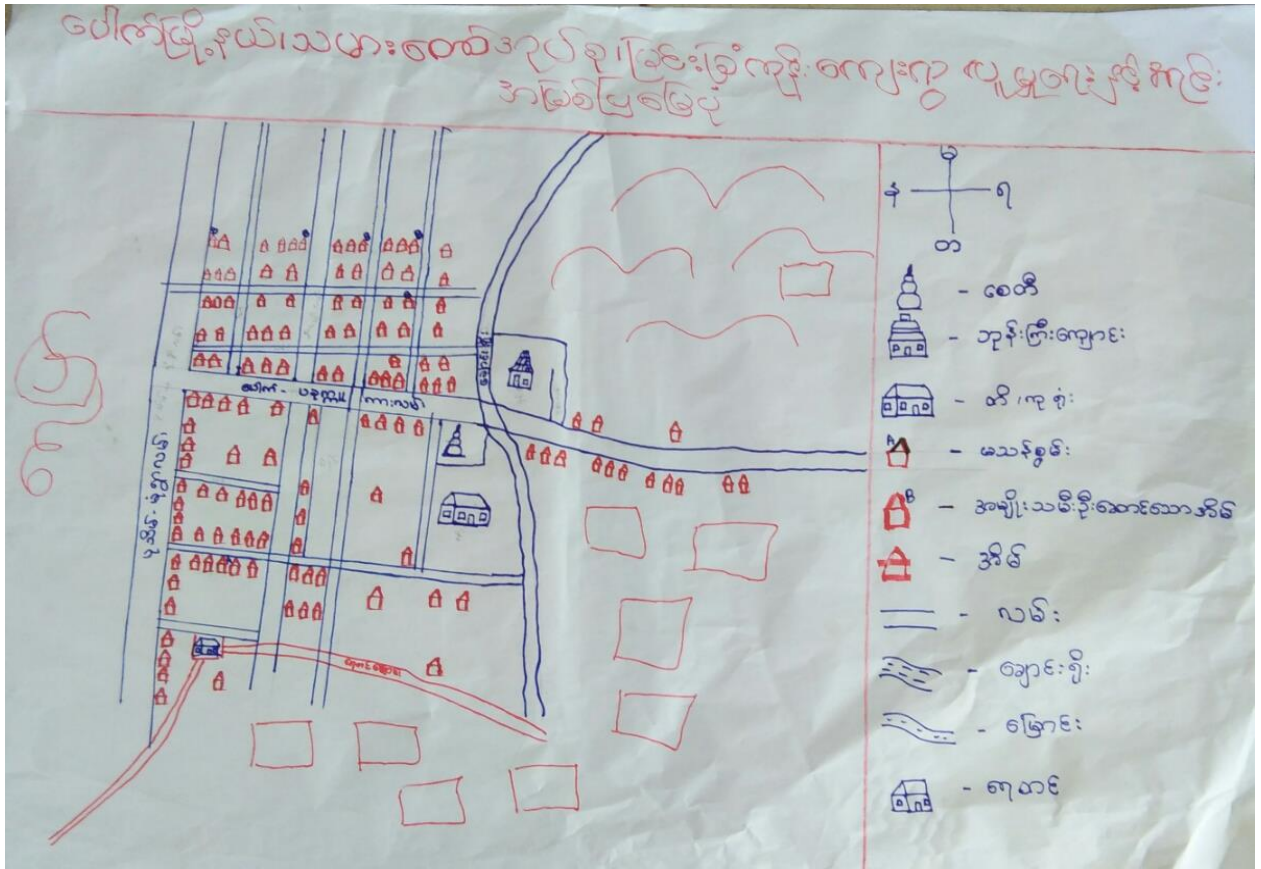 ပေါက်မြို့နယ်၊သပွားဝတော်အုပ်စု၊မြင်းခြံကုန်းကျေးရွာ လူမှုရေးနှင့်အရင်း
အမြစ်ပြမြေပုံ
မ
န
ရ
တ
- စေတီ
- ဘုန်းကြီးကျောင်း
- တိ၊ကုရုံး
A
- မသန်စွမ်း
B
- အမျိုးသမီးဦးဆောင်သောအိမ်
- အိမ်
- လမ်း
- ချောင်းရိုး
- မြောင်း
- ရေတင်
ပေါက် - ပခုက္ကူ ကားလမ်း
ပုသိမ် - မုံရွာလမ်း